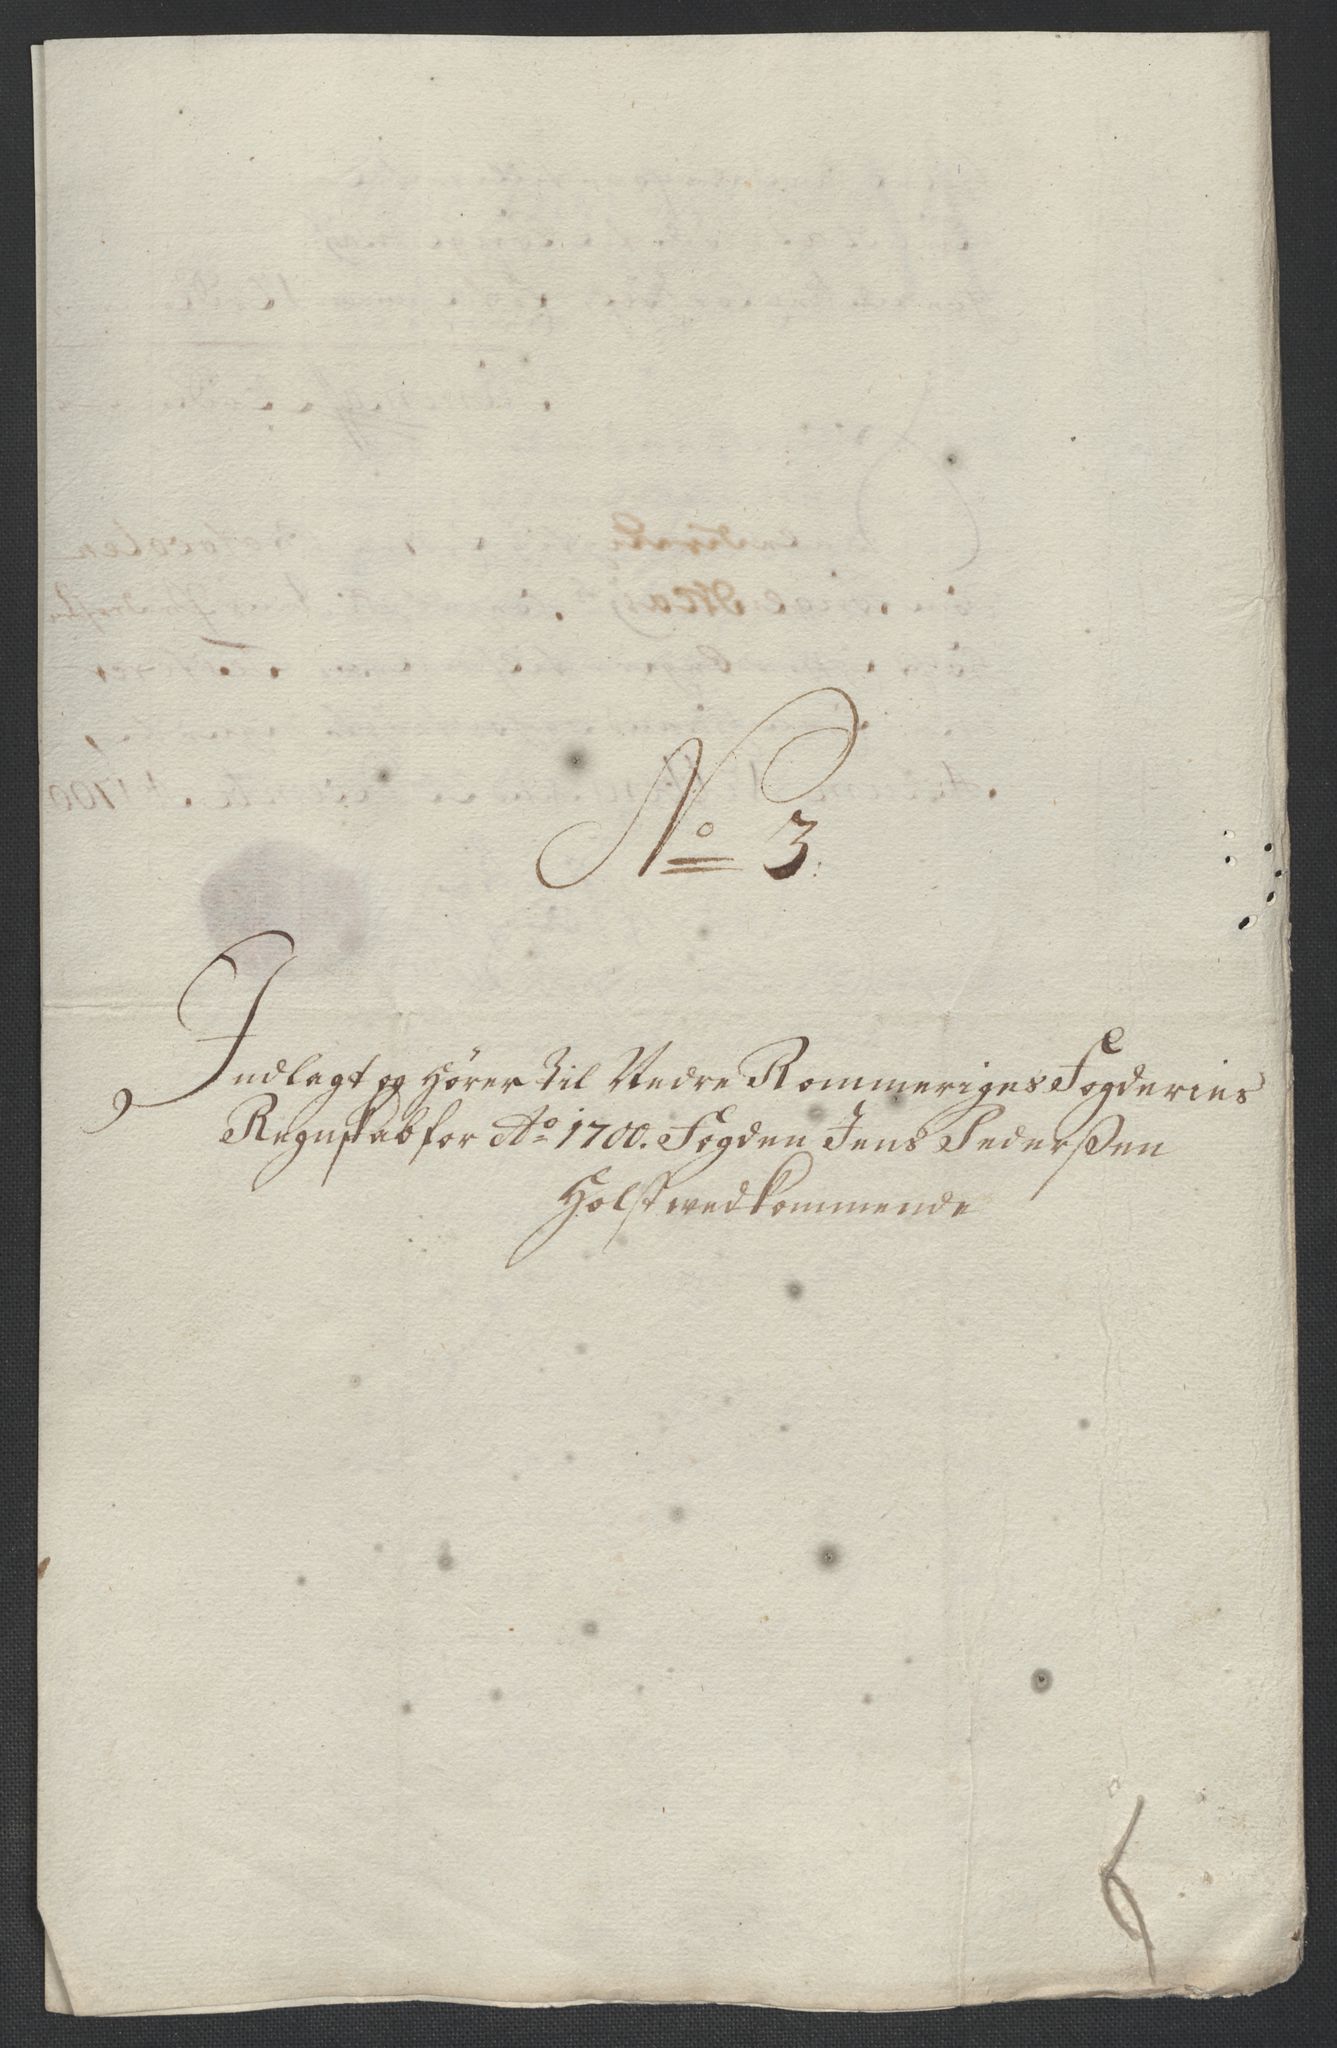 No 3.
Indlagt og hører til Nedre Rommeriges Fogderies
Regnskab for Ao 1700. Fogden Jens Pederßen
Holst vedkommende